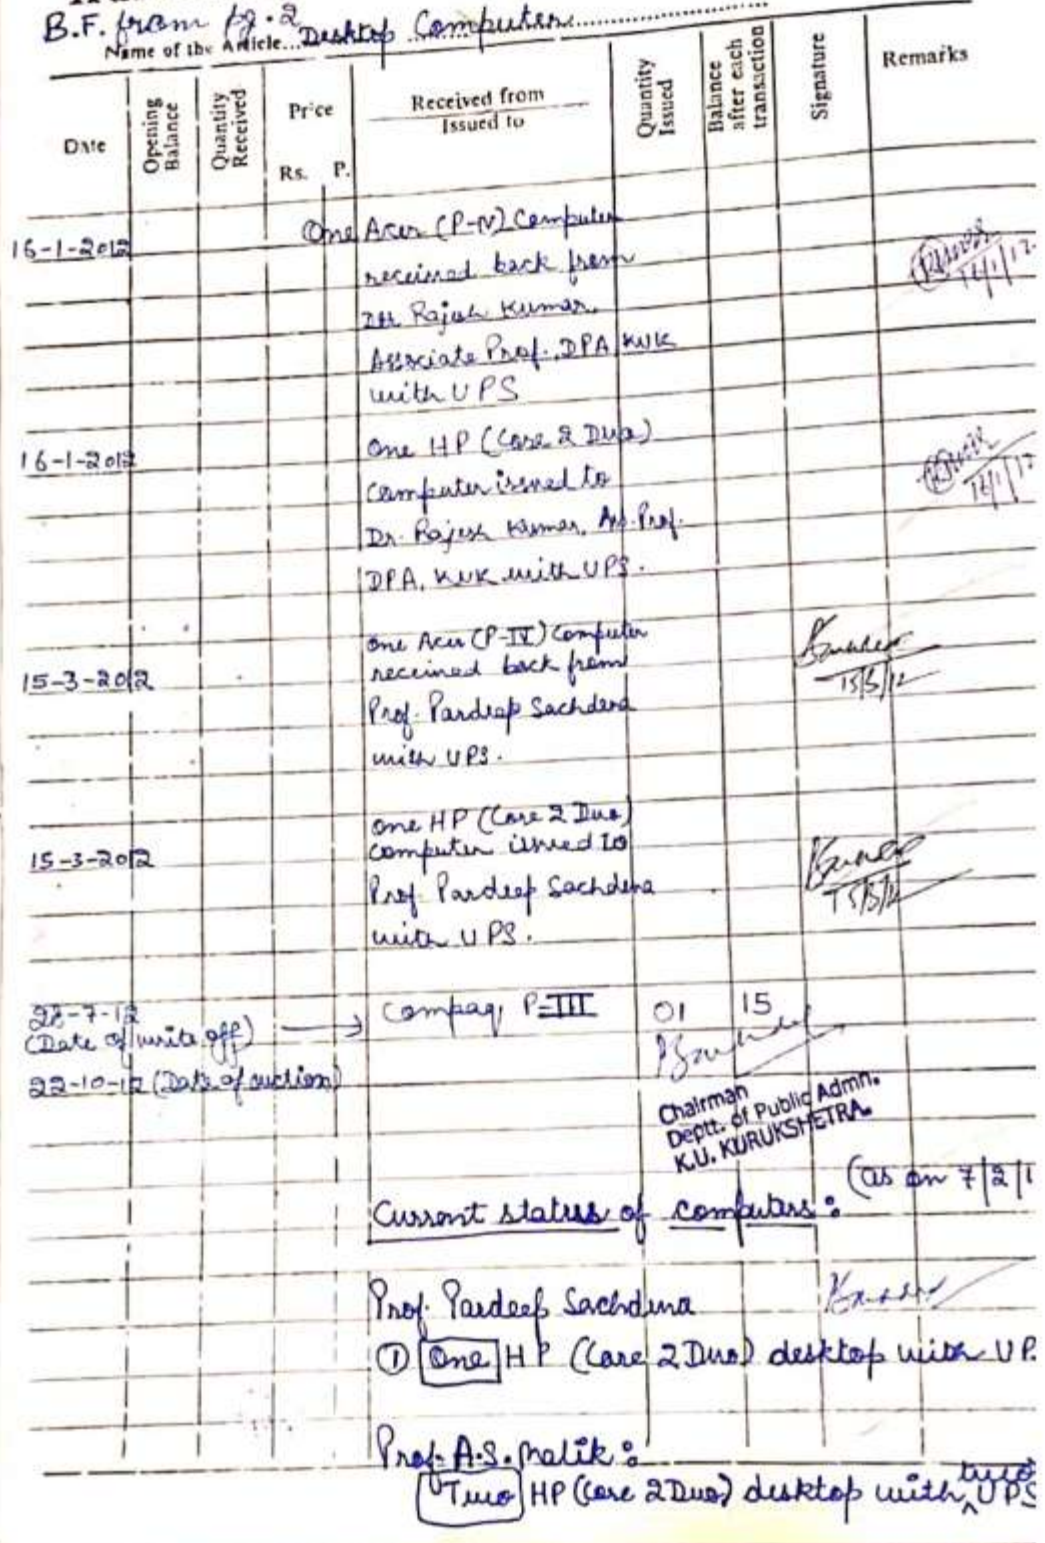 B.F. from pg. 2
Name of the Article... Desktop Computer...
Date
Opening Balance
Quantity Received
Price
Rs. P.
Received from
Issued to
Quantity Issued
Balance after each transaction
Signature
Remarks
16-1-2012 One Acer (P-IV) Computer
received back from
Dr. Rajesh Kumar,
Associate Prof. DPA, KUK
with UPS
16/1/12
16-1-2012 One HP (Core 2 Duo)
Computer issued to
Dr. Rajesh Kumar, Ass. Prof.
DPA, KUK with UPS.
16/1/12
One Acer (P-IV) Computer
15-3-2012 received back from
Prof. Pardeep Sachdeva
with UPS.
15/3/12
One HP (Core 2 Duo)
15-3-2012 computer issued to
Prof. Pardeep Sachdeva
with UPS.
15/3/12
28-7-12 Compaq P-III 01 15
(Date of write off) →
22-10-12 (Date of auction)
Chairman
Deptt. of Public Admn.
K.U. KURUKSHETRA.
(as on 7/2/1
Current status of computers:
Prof. Pardeep Sachdeva
① One HP (Core 2 Duo) desktop with UP
Prof. A.S. Malik:
Two HP (Core 2 Duo) desktop with two UPS